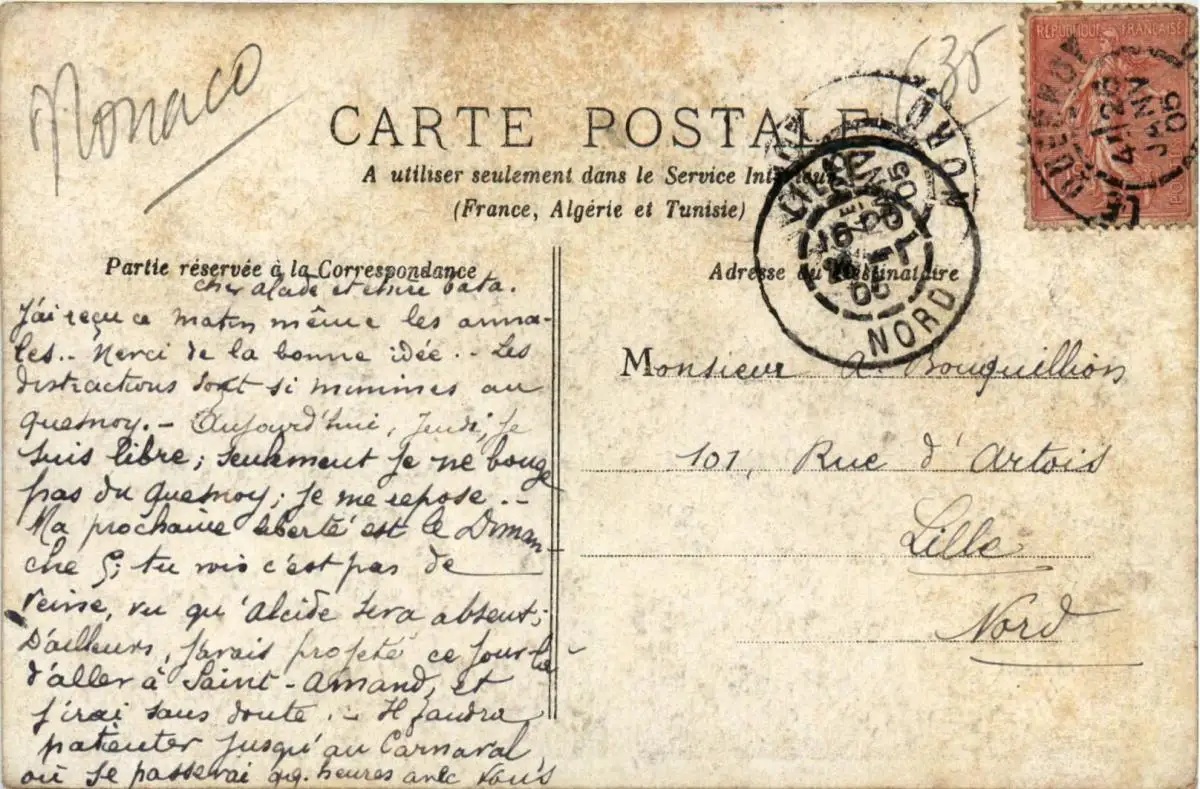 Monaco
635
RÉPUBLIQUE FRANÇAISE
LE QUESNOY
4E 26
JANV
05
NORD
CARTE POSTALE
A utiliser seulement dans le Service Intérieur
(France, Algérie et Tunisie)
LILLE
NORD
05
Partie réservée à la Correspondance
Adresse du Destinataire
cher alade et chère bata.
J'ai reçu ce matin même les anna-
les.- Merci de la bonne idée.- Les
distractions sont si minimes au
Quesnoy.- Aujourd'hui, Jeudi, je
suis libre; seulement je ne bouge
pas du Quesnoy; je me repose.-
Ma prochaine liberté est le Diman-
che 5; tu vois c'est pas de
veine, vu qu'alcide sera absent;
D'ailleurs, j'avais projeté ce jour-là
d'aller à Saint-Amand, et
j'irai sans doute.- Il faudra
patienter jusqu'au Carnaval
où je passerai qq. heures avec vous
Monsieur A. Bouquillion
101, Rue d'Artois
Lille
Nord